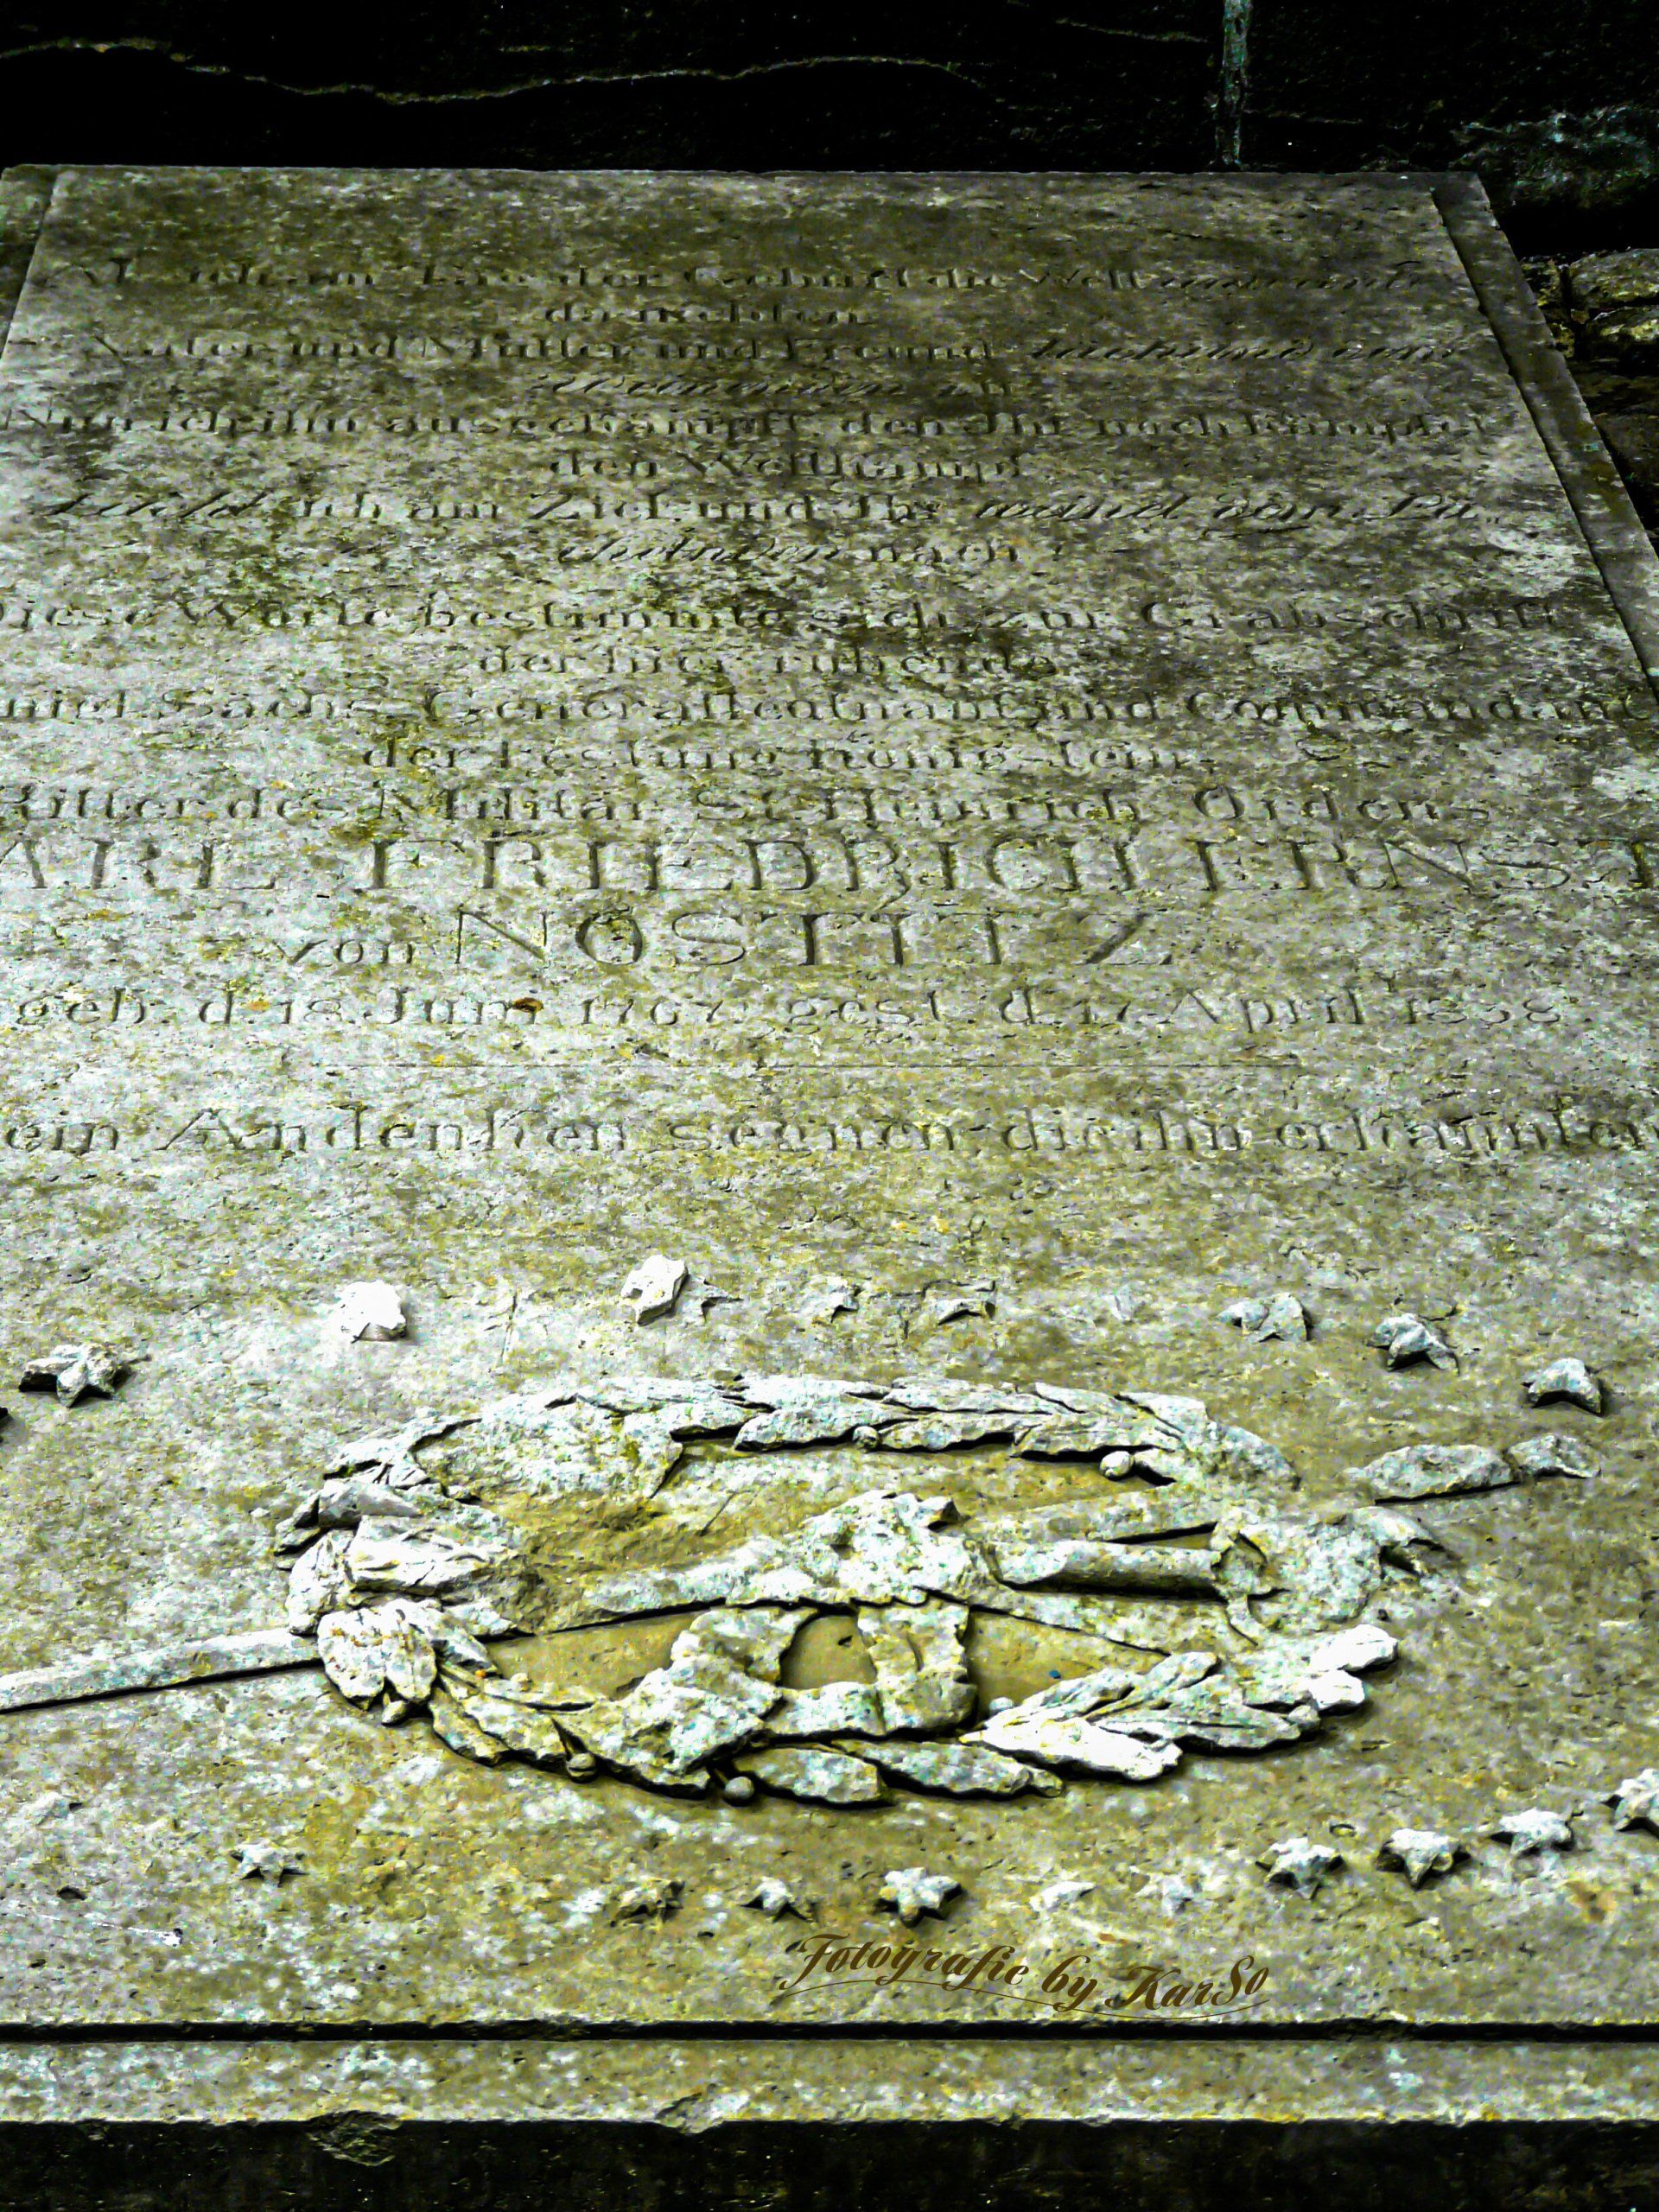 Als ich am Tage der Geburt die Welt
da nickten
Vater und Mutter und Freund lächelnd dem
zu
Nun ich ihn ausgekämpft, den Ihr noch kämpfet
den Wettkampf
ich am Ziel, und Ihr weinet dem Lä-
chelnden nach
Diese Worte bestimmte sich zur Grabschrift
der hier ruhende
Sächs. Generalleutnant und Commandant
der Festung Königstein,
Ritter des Militär St. Heinrich Ordens
ARL FRIEDRICH ERNST
von NOSTITZ
geb. d. 18. Juni 1767. gest. d. 17. April 1838.
ein Andenken segnen, die ihn erkannten
Fotografie by KarSo